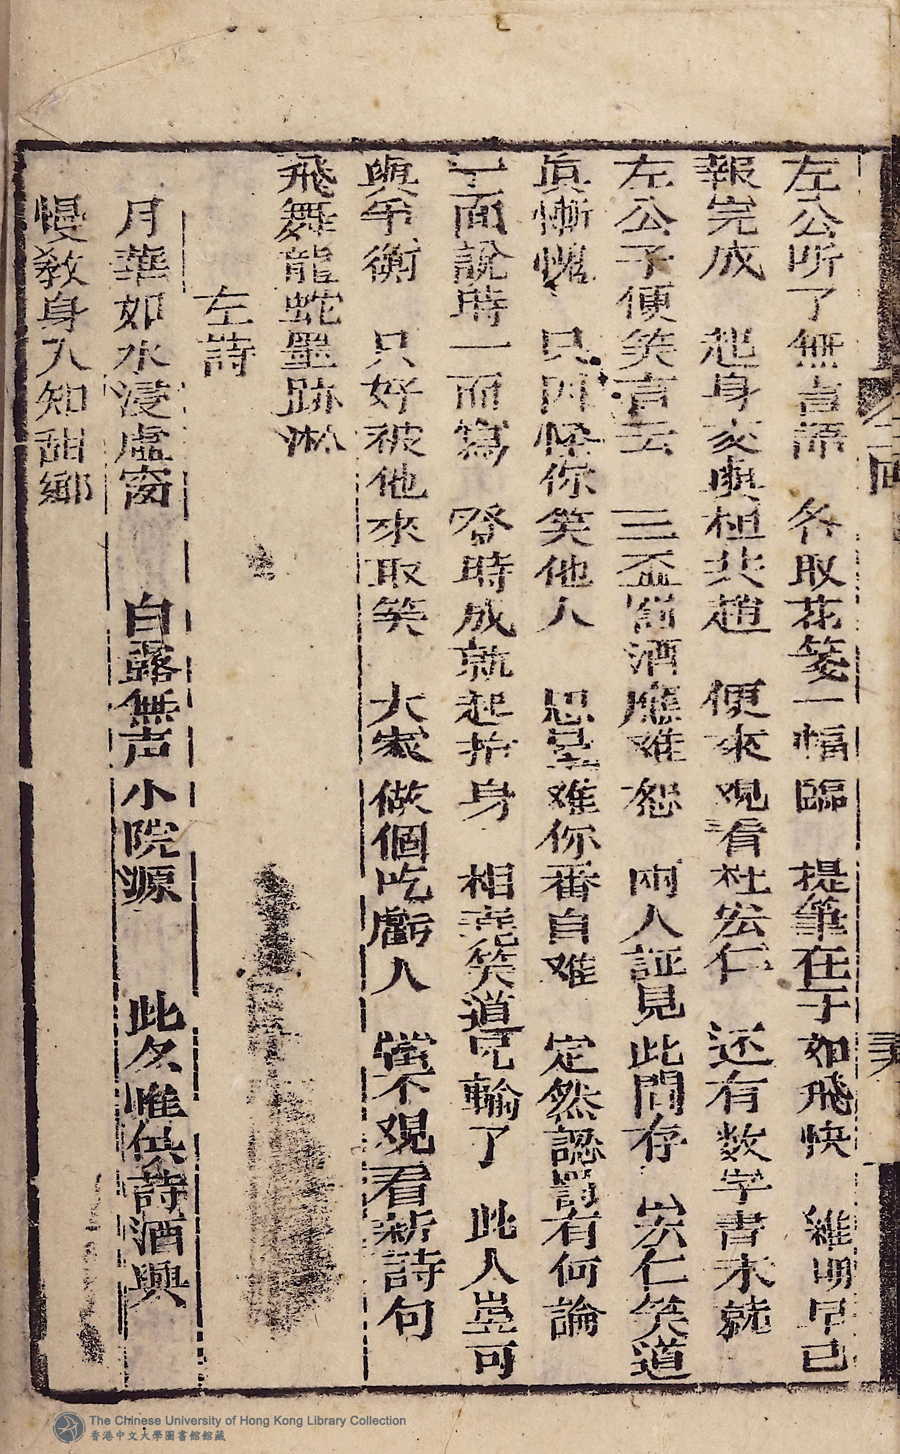 左公听了無言語 各取花箋一幅臨 提筆在于如飛快 維明早已
報完成 起身亥與桓共趙 便來观看杜宏仁 还有数字書未就
左公子便笑言云 三盃罰酒應难恕 兩人証見此間存 宏仁笑道
真慚愧 只因怪你笑他人 思量难你番自难 定然認罰有何論
一面說時一面寫 登時成就起抬身 相 笑道兄輸了 此人豈可
與爭衡 只好被他來取笑 大家做個吃虧人 當不观看新詩句
飛舞龍蛇墨跡淋
左詩
月華如水浸虛窗 白露無声小院源 此夕惟供詩酒興
慢教身入知甜鄉
The Chinese University of Hong Kong Library Collection
香港中文大學圖書館館藏